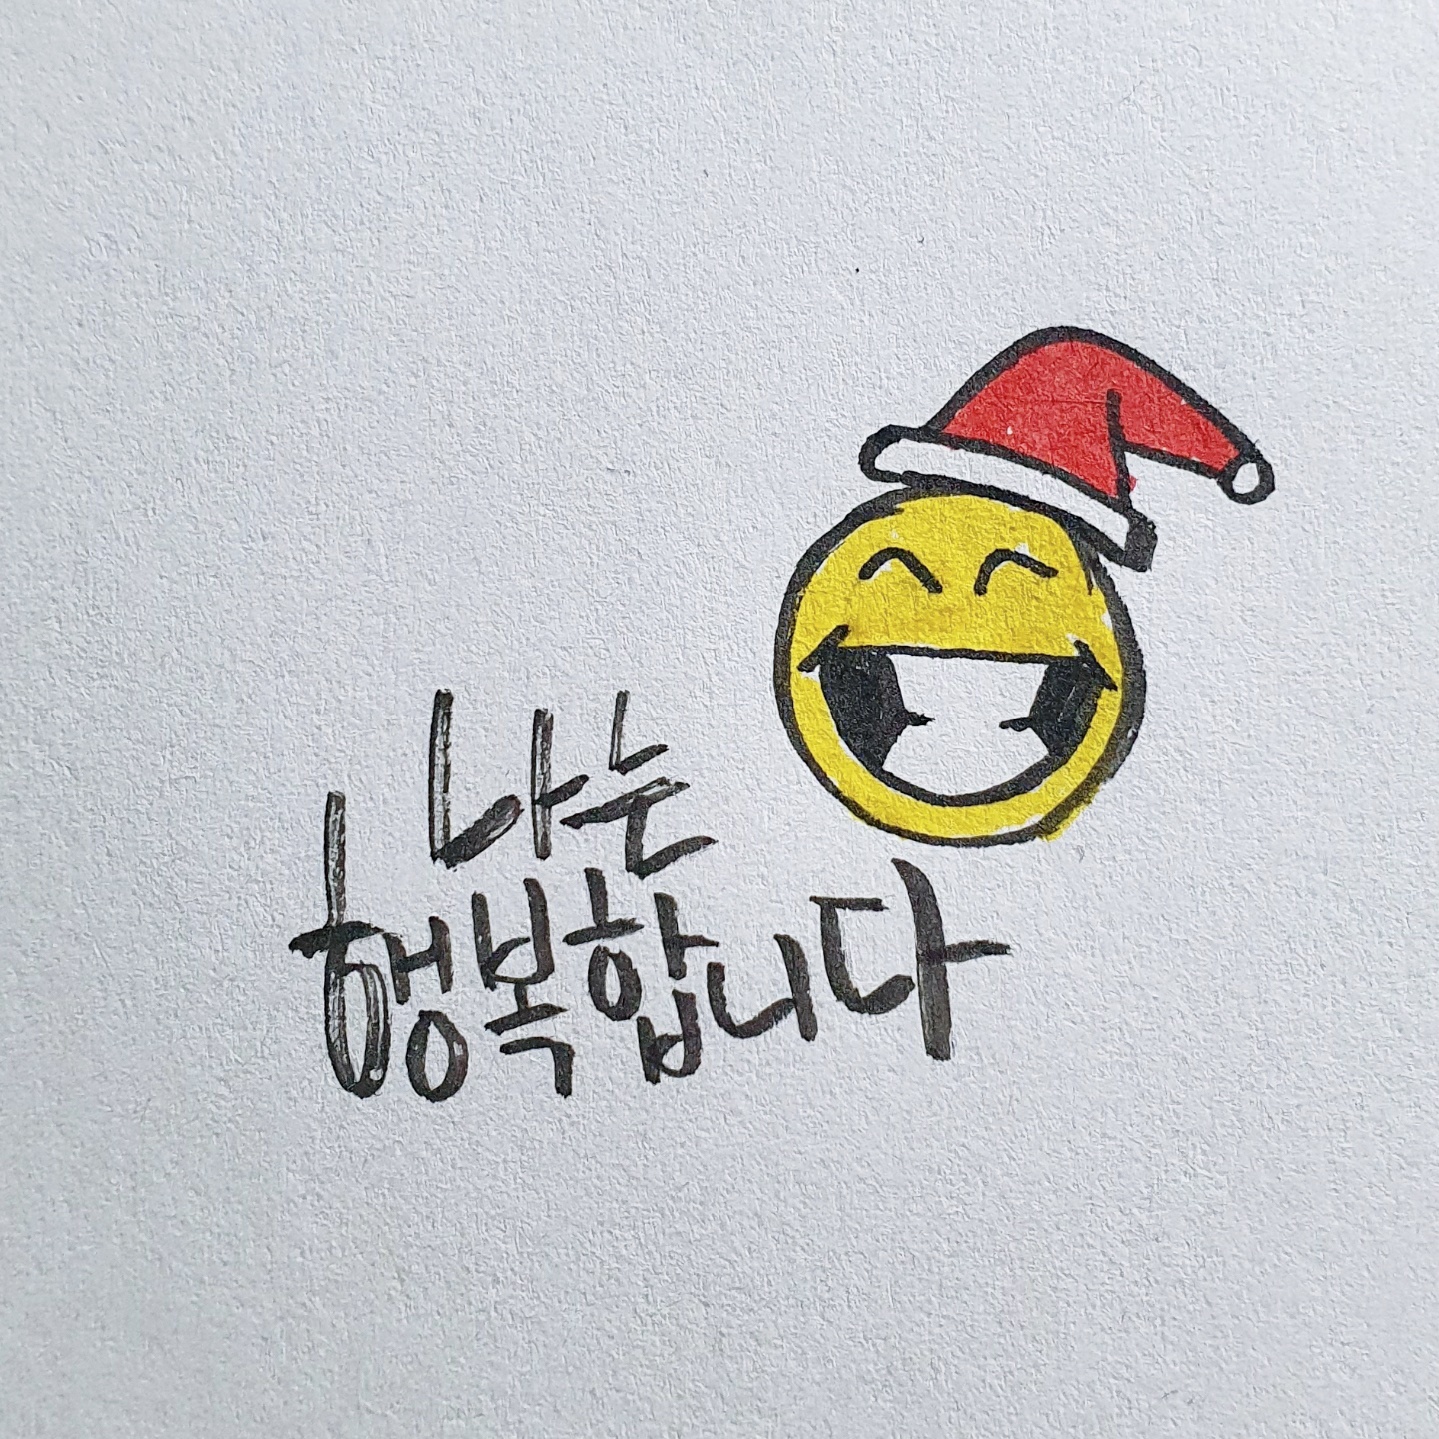 나는
행복합니다